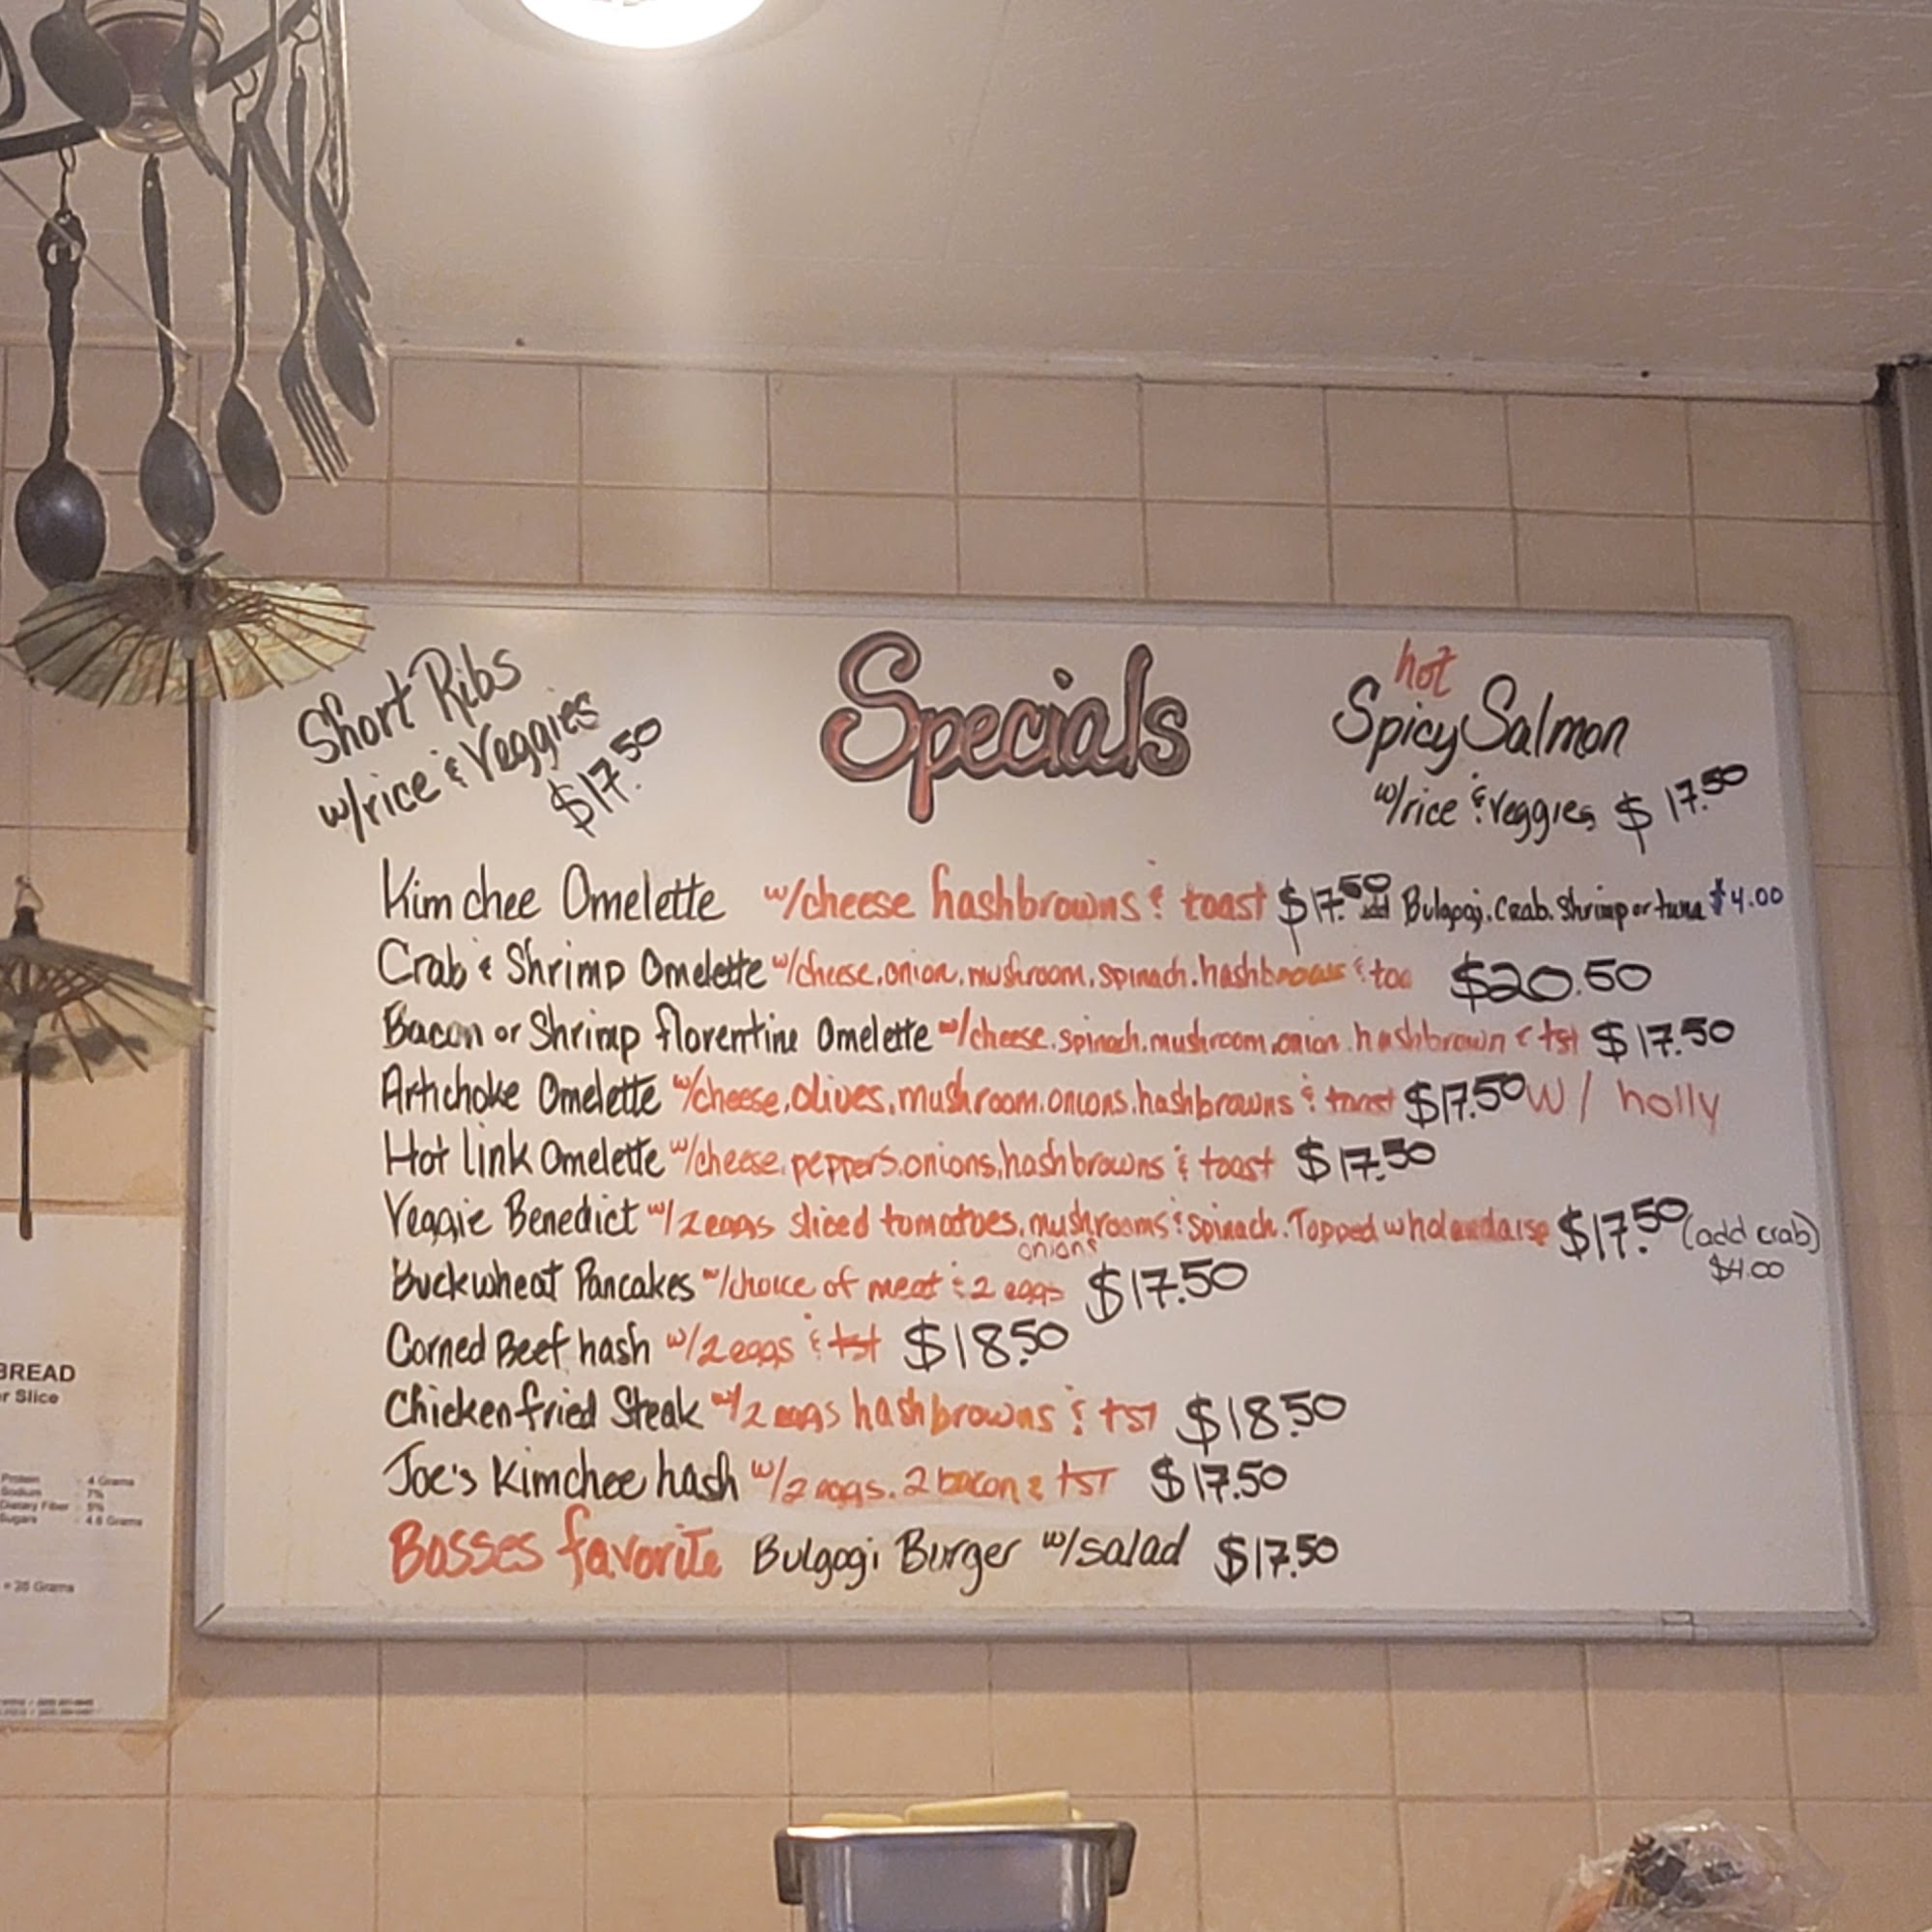 Short Ribs
w/rice & Veggies
$17.50
Specials
hot
Spicy Salmon
w/rice & veggies $17.50
Kimchee Omelette w/cheese hashbrowns & toast $17.50 add Bulgogi. Crab. Shrimp or tuna $4.00
Crab & Shrimp Omelette w/cheese, onion, mushroom, spinach. hashbrowns & toa $20.50
Bacon or Shrimp florentine Omelette w/cheese. spinach. mushroom. onion. hashbrown & tst $17.50
Artichoke Omelette w/cheese, olives, mushroom. onions. hashbrowns & toast $17.50 w/ holly
Hot link Omelette w/cheese. peppers. onions. hashbrowns & toast $17.50
Veggie Benedict w/2 eggs sliced tomatoes. mushrooms & spinach. Topped w holandaise $17.50 (add crab)
onions
$4.00
Buckwheat Pancakes w/choice of meat & 2 eggs $17.50
Corned Beef hash w/2 eggs & tst $18.50
Chicken fried Steak w/2 eggs hashbrowns & tst $18.50
Joe's Kimchee hash w/2 eggs. 2 bacon & tst $17.50
Bosses favorite Bulgogi Burger w/salad $17.50
BREAD
r Slice
Protein - 4 Grams
Sodium 7%
Dietary Fiber - 5%
Sugars - 4.6 Grams